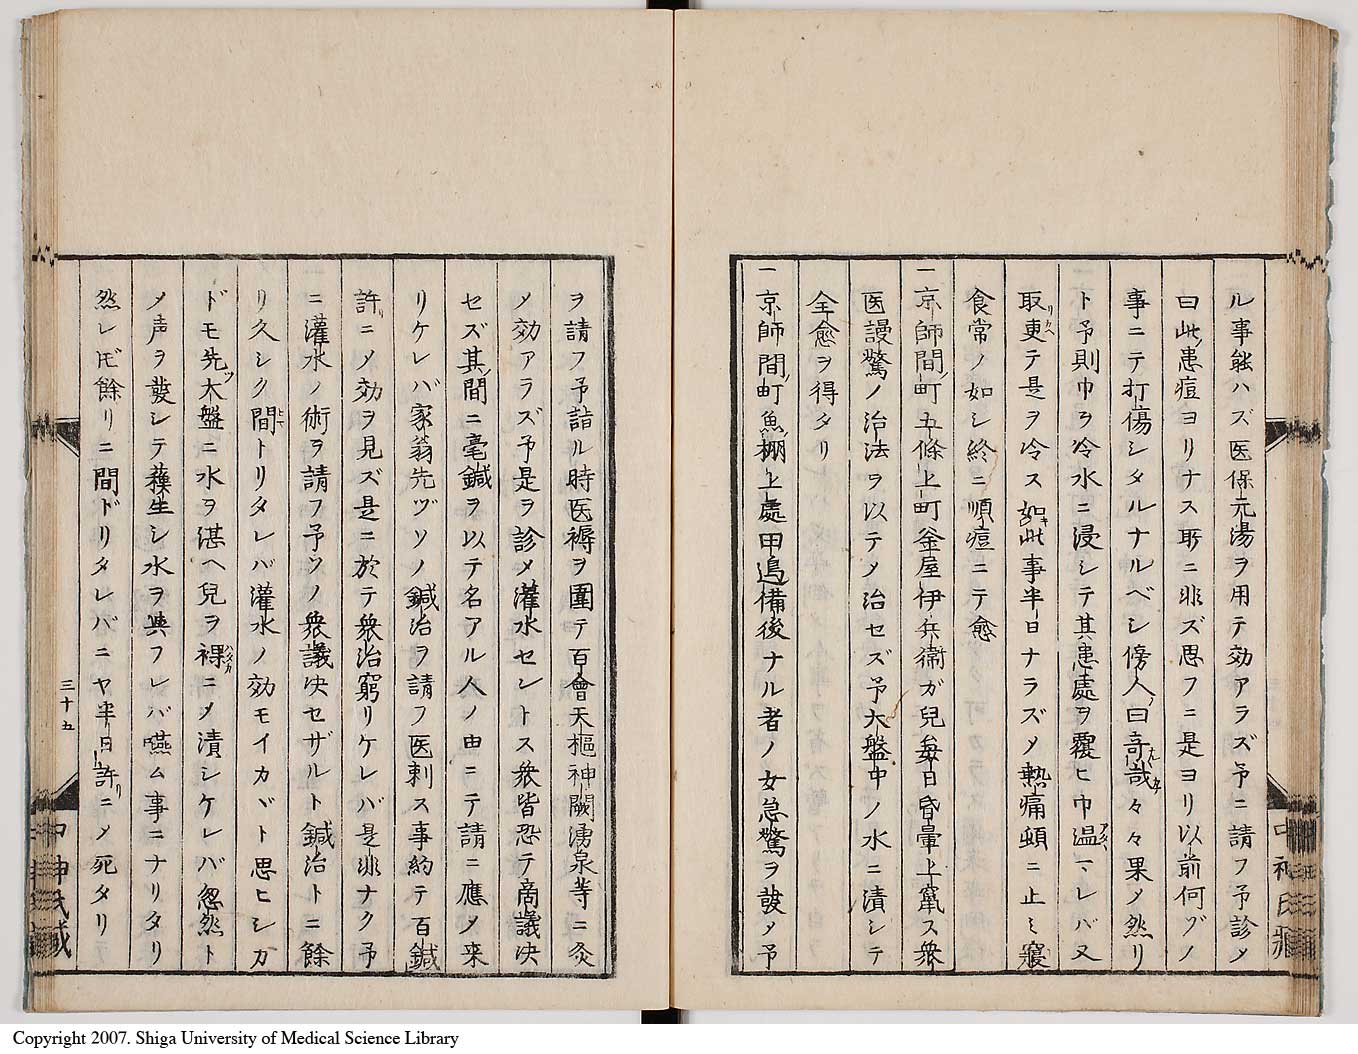 ル事能ハズ医保元湯ヲ用テ効アラズ予ニ請フ予診〆
曰此患痘ヨリナス所ニ非ズ思フニ是ヨリ以前何ヅノ
事ニテ打傷シタルナルベシ傍人曰奇哉々々果〆然リ
ト予則巾ヲ冷水ニ浸シテ其患處ヲ覆ヒ巾温マレバ又
取更テ是ヲ冷ス如此事半日ナラズ〆熱痛頓ニ止ミ寢
食常ノ如シ終ニ順痘ニテ愈
一京師間町五條上町釜屋伊兵衞ガ兒每日昏暈上竄ス衆
医謾驚ノ治法ヲ以テ〆治セズ予大盤中ノ水ニ漬シテ
全愈ヲ得タリ
一京師間町魚棚上處甲嶋備後ナル者ノ女急驚ヲ發〆予
ヲ請フ予詣ル時医褥ヲ圍テ百會天樞神闕湧泉等ニ灸
〆効アラズ予是ヲ診〆灌水セントス衆皆恐テ商議决
セズ其間ニ毫鍼ヲ以テ名アル人ノ由ニテ請ニ應〆来
リケレバ家翁先ヅソノ鍼治ヲ請フ医刺ス事約テ百鍼
許ニ〆効ヲ見ズ是ニ於テ衆治窮リケレバ是非ナク予
ニ灌水ノ術ヲ請フ予ソノ衆議决セザルト鍼治トニ餘
リ久シク間トリタレバ灌水ノ効モイカヾト思ヒシカ
ドモ先大盤ニ水ヲ湛ヘ兒ヲ裸ニ〆漬シケレバ忽然ト
〆声ヲ發シテ蘓生シ水ヲ與フレバ嚥ム事ニナリタリ
然レ𪜈餘リニ間ドリタレバニヤ半日許ニ〆死タリ
三十五
中神氏藏
中神氏藏
Copyright 2007. Shiga University of Medical Science Library